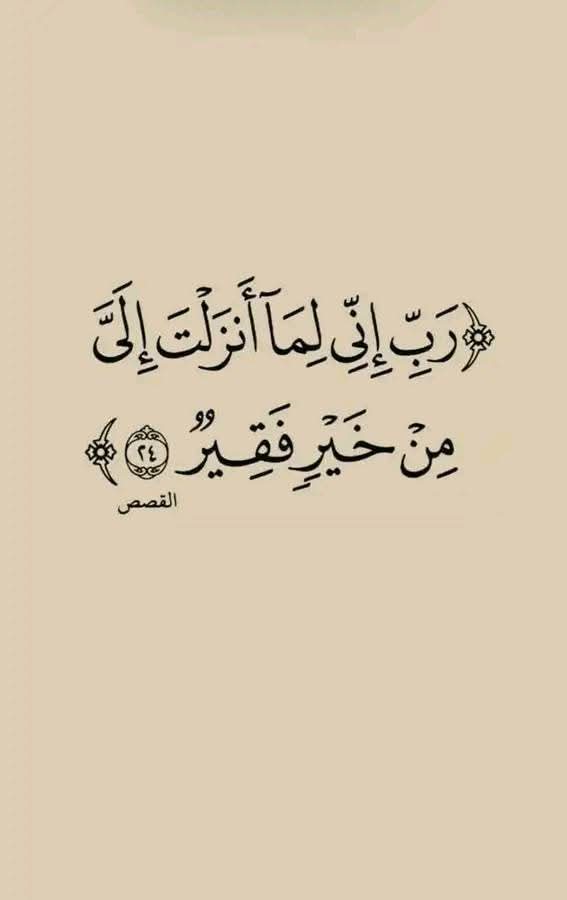 ﴿رَبِّ إِنِّي لِمَآ أَنزَلْتَ إِلَىَّ
مِنْ خَيْرٍ فَقِيرٌ ٢٤﴾
القصص